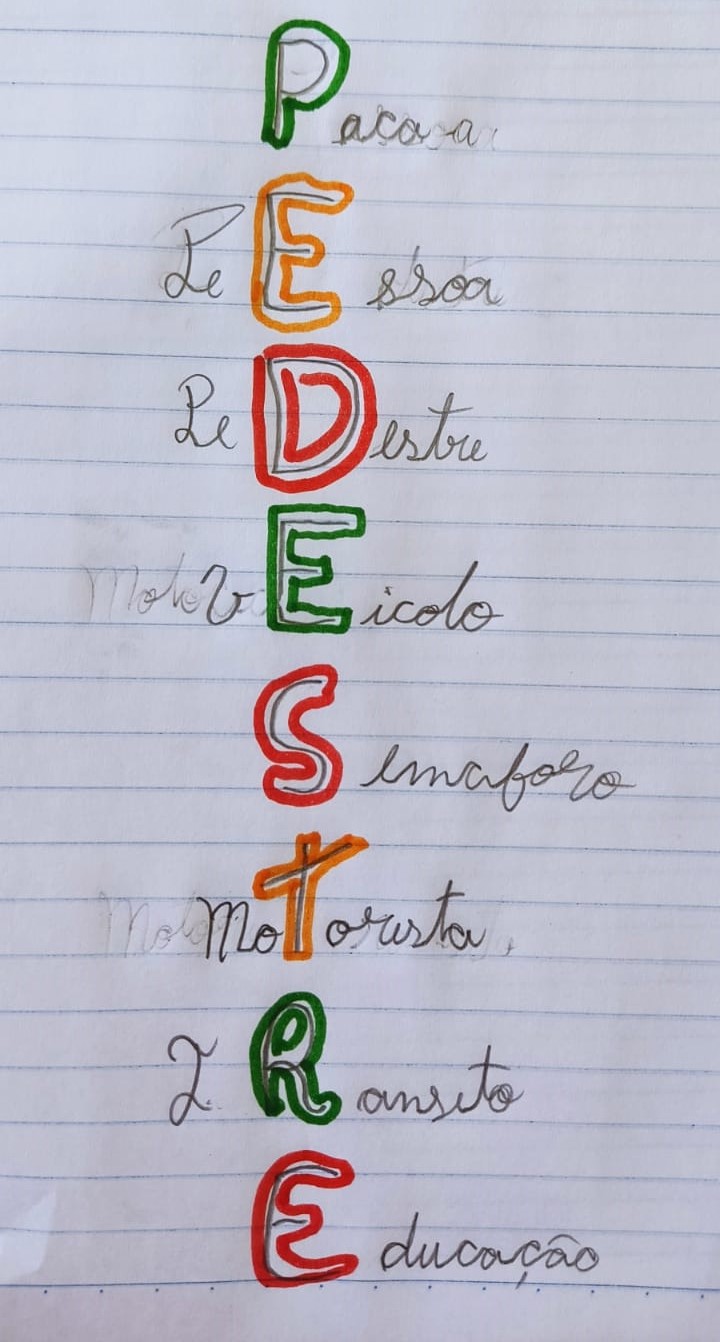 Pacaa
PeEssoa
PeDestre
vEicolo
Semaforo
MoTorista
TRansito
Educação